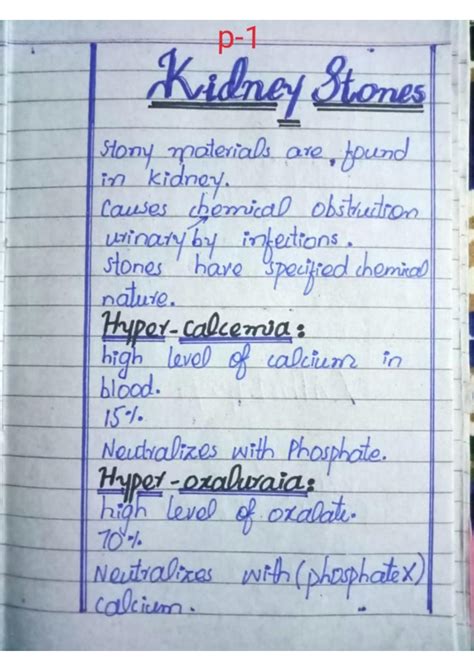 p-1
Kidney Stones
Stony materials are found
in kidney.
Causes chemical obstruition
urinary by infections.
stones have specified chemical
nature.
Hyper-calcemia:
high level of calcium in
blood.
15%
Neutralizes with Phosphate.
Hyper-oxaluraia:
high level of oxalate.
70%
Neutralizes with (phosphate X)
calcium.